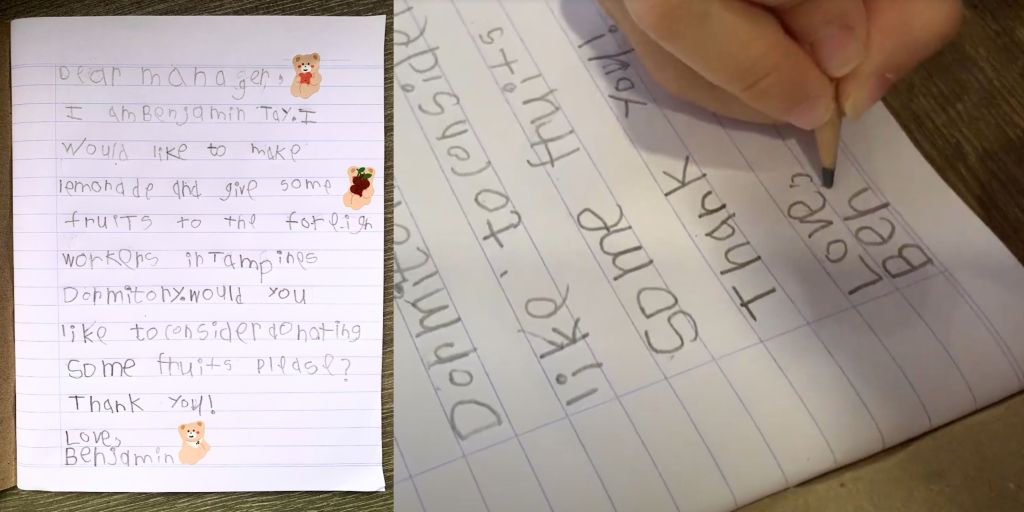 Dear manager,
I am Benjamin Tay. I
would like to make
lemonade and give some
fruits to the foreign
workers in Tampines
Dormitory. would you
like to consider donating
some fruits please?
Thank you!
Love,
Benjamin
like to consider
some fruits
Thank you!
Love,
Ben